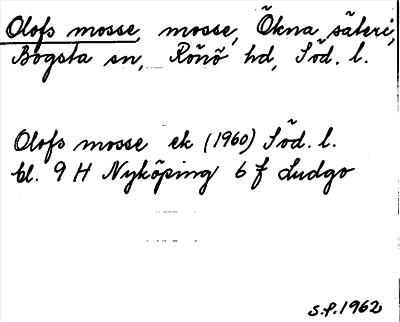 Olofs mosse, mosse, Ökna säteri,
Bogsta sn, Rönö hd, Söd. l.
Olofs mosse ek (1960) Söd. l.
bl. 9 H Nyköping 6 f Ludgo
S.P. 1962